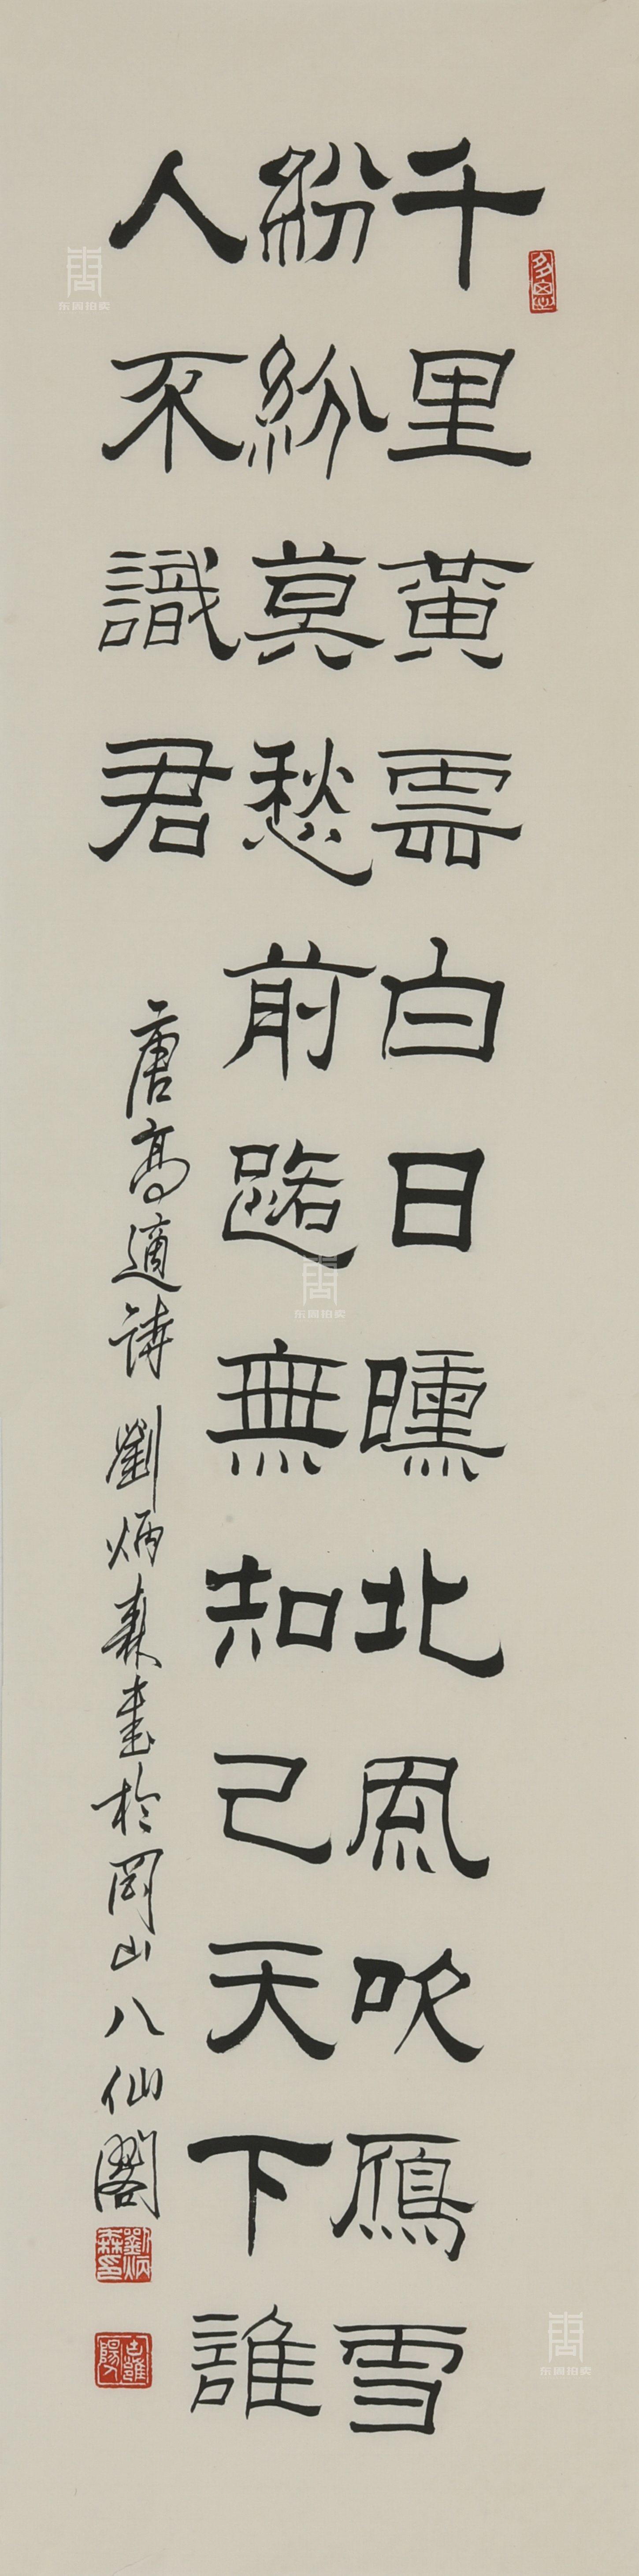 千里黃雲白日曛北風吹鴈雪
紛紛莫愁前路無知己天下誰
人不識君
唐高適詩 劉炳森書於岡山八仙閣
劉炳森印
东周拍卖
东周拍卖
东周拍卖